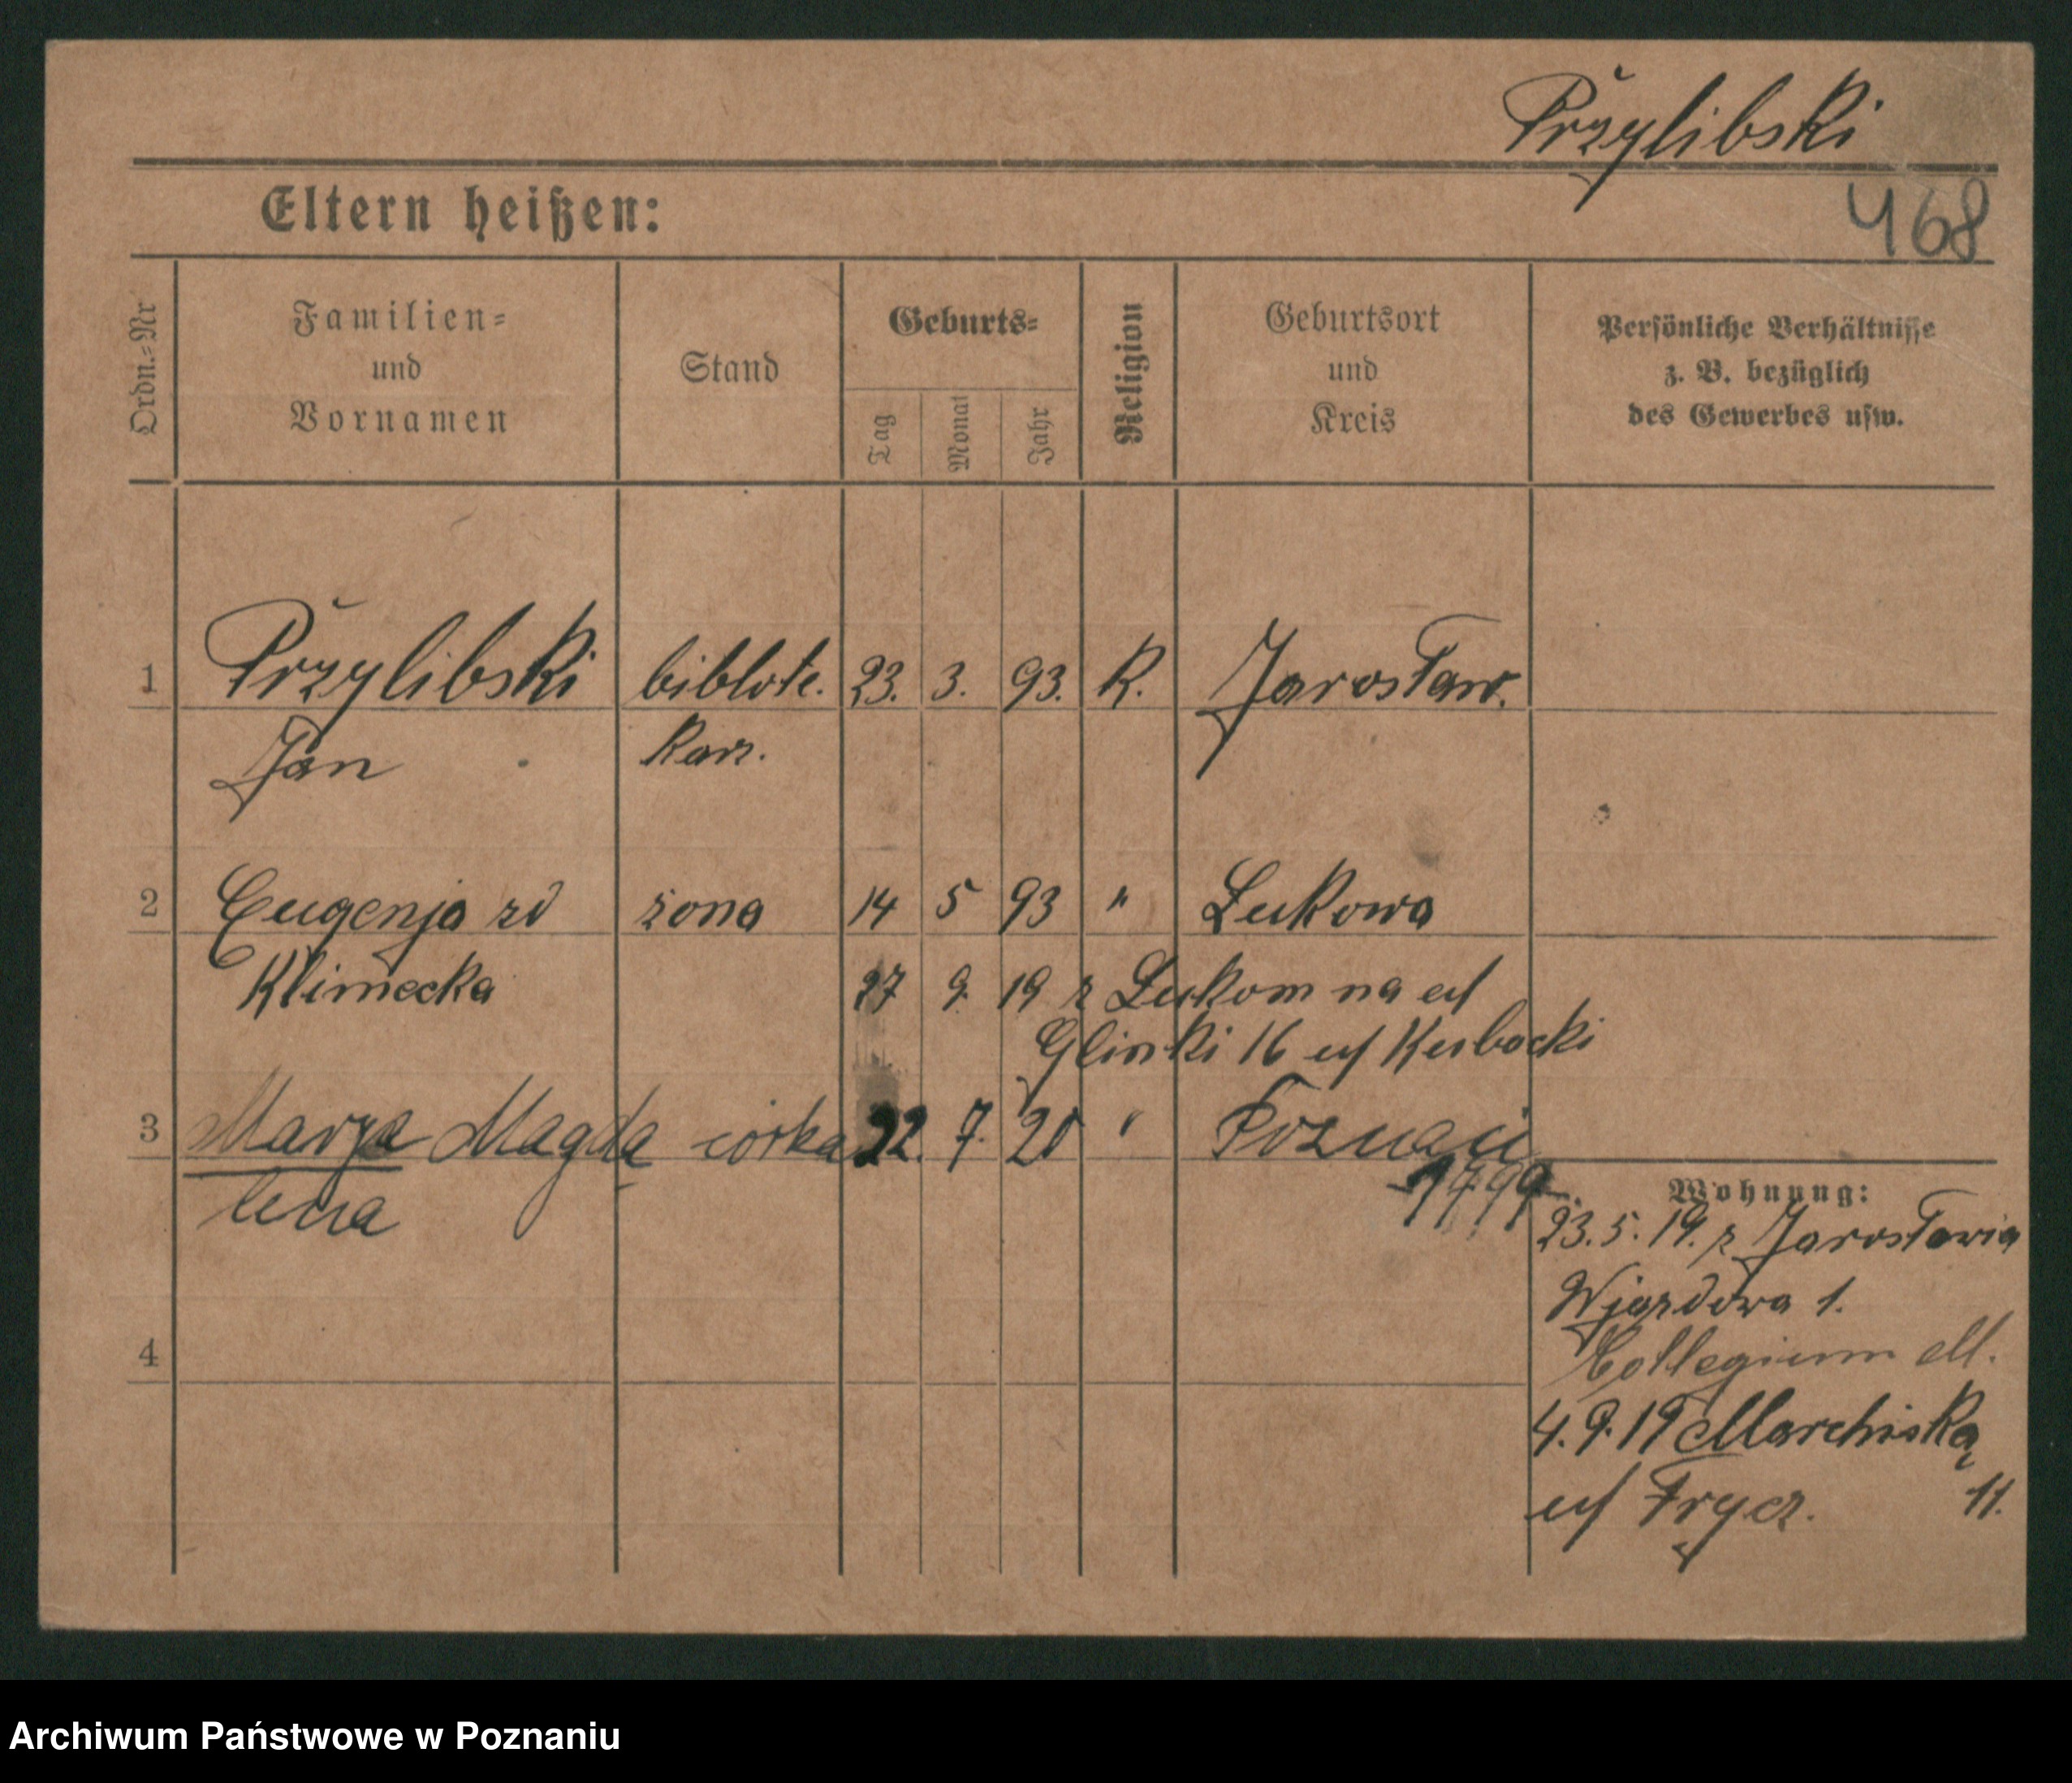 Przylibski
468
Eltern heißen:
Ordn.=Nr
Familien=
und
Vornamen
Stand
Geburts=
Tag
Monat
Jahr
Religion
Geburtsort
und
Kreis
Persönliche Verhältnisse
z. B. bezüglich
des Gewerbes usw.
1 Przylibski biblote. 23. 3. 93. R. Jarosław.
Jan karz.
2 Eugenja zd żona 14 5 93 " Lukowa
Klimecka 27 9. 19 z Lukom na
Glinki 16
3 Marya Magda córka 22. 7. 20 " Poznań
lena
1799
Wohnung:
23. 5. 19. z Jarosławia
Wjazdowa 1.
Collegium M.
4. 9. 19
11.
4
Archiwum Państwowe w Poznaniu